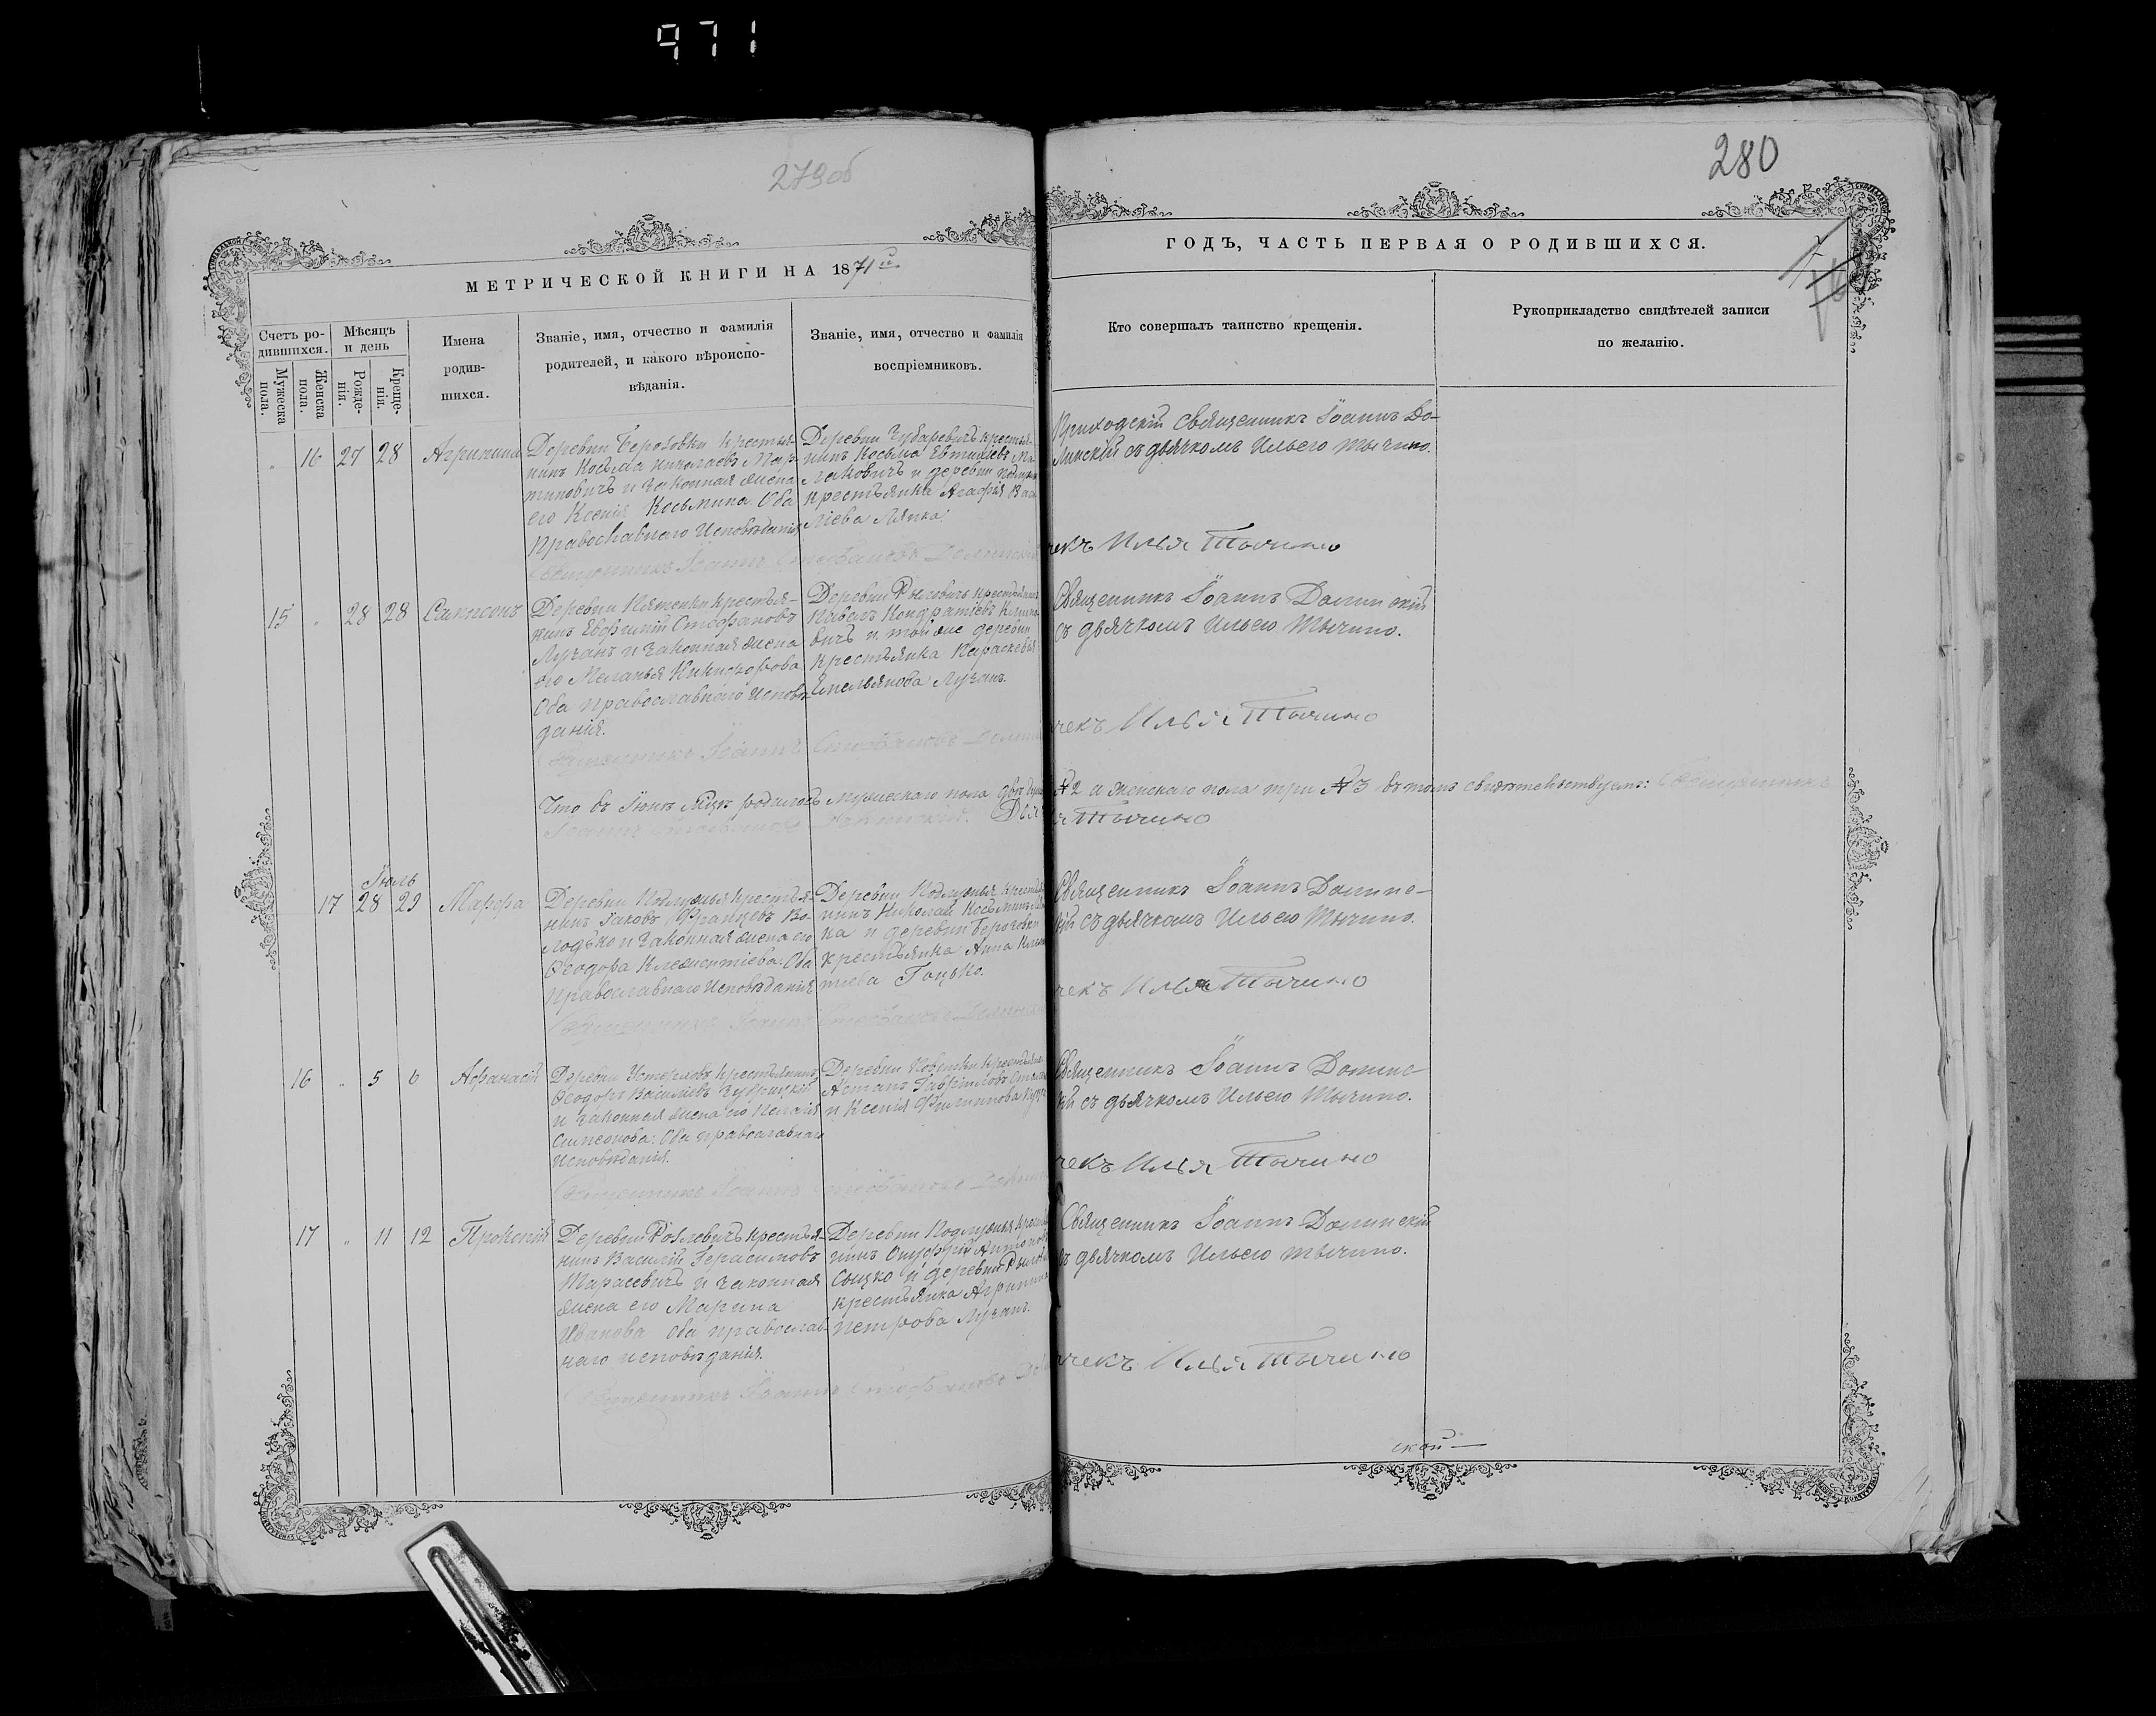 971
279об
280
МЕТРИЧЕСКОЙ КНИГИ НА 1871й
ГОДЪ, ЧАСТЬ ПЕРВАЯ О РОДИВШИХСЯ.
Счетъ ро-
дившихся.
Мужеска
пола.
Женска
пола.
Мѣсяцъ
и день
Рожде-
нія.
Креще-
нія.
Имена
родив-
шихся.
Званіе, имя, отчество и фамилія
родителей, и какого вѣроиспо-
вѣданія.
Званіе, имя, отчество и фамилія
воспріемниковъ.
Кто совершалъ таинство крещенія.
Рукоприкладство свидѣтелей записи
по желанію.
16 27 28 Агрипина
Деревни Березовки крестья-
нинъ Косьма Николаевъ Мар-
тиновичъ и законная жена
его Ксенія Косьмина. Оба
Православнаго Исповѣданія
Деревни крестья-
нинъ Косьма Евтихіевъ
и деревни
крестьянка Агафія Васи
ліева
Приходскій Священникъ Іоаннъ До-
линскій съ дьячкомъ Ильею Тычино.
Священникъ Іоаннъ Стефановъ Долинскій
чекъ Илья Тычино
15 " 28 28 Сампсонъ
Деревни крестья-
нинъ Евфимій Стефановъ
Лучанъ и законная жена
его Меланья Никифорова
Оба православнаго Исповѣ-
данія.
Деревни крестьянинъ
Павелъ Кондратіевъ
вичъ и той же деревни
крестьянка Параскевія
Емельянова Лучанъ.
Священникъ Іоаннъ Долинскій
съ дьячкомъ Ильею Тычино.
Священникъ Іоаннъ Стефановъ Долин
чекъ Илья Тычино
Что въ Іюнѣ М-цѣ родилось мужескаго пола два №2 и женскаго пола три №3 въ томъ свидѣтельствуемъ: Священникъ
Іоаннъ Стефановъ Долинскій. Тычино
Іюль
17 28 29 Марфа
Деревни Подлужья крестья-
нинъ Іаковъ Францевъ Во-
лодько и законная жена его
Ѳеодора Клементіева. Оба
Православнаго Исповѣданія
Деревни Подлужья крестья
нинъ Николай Косьминъ
ка и деревни Березовки
крестьянка Анна
тіева Гацько.
Священникъ Іоаннъ Долинс-
кій съ дьячкомъ Ильею Тычино.
Священникъ Іоаннъ Стефановъ Долинскій
чекъ Илья Тычино
16 " 5 6 Афанасій
Деревни крестьянинъ
Ѳеодоръ Василіевъ
и законная жена его Пелагія
Симеонова. Оба православнаго
Исповѣданія.
Деревни крестьяне
Гавріиловъ
и Ксенія Филиппова
Священникъ Іоаннъ Долинс-
кій съ дьячкомъ Ильею Тычино.
Священникъ Іоаннъ Стефановъ Долин
чекъ Илья Тычино
17 " 11 12 Прокопій
Деревни крестья-
нинъ Василій Герасимовъ
Тарасевичъ и законная
жена его Марина
Иванова Оба православ-
наго исповѣданія.
Деревни Подлужья крестья
нинъ Онуфрій Антоновъ
Сыцко и деревни
крестьянка Агрипина
Петрова Лучанъ.
Священникъ Іоаннъ Долинскій
съ дьячкомъ Ильею Тычино.
Священникъ Іоаннъ Стефановъ
чекъ Илья Тычино
ской